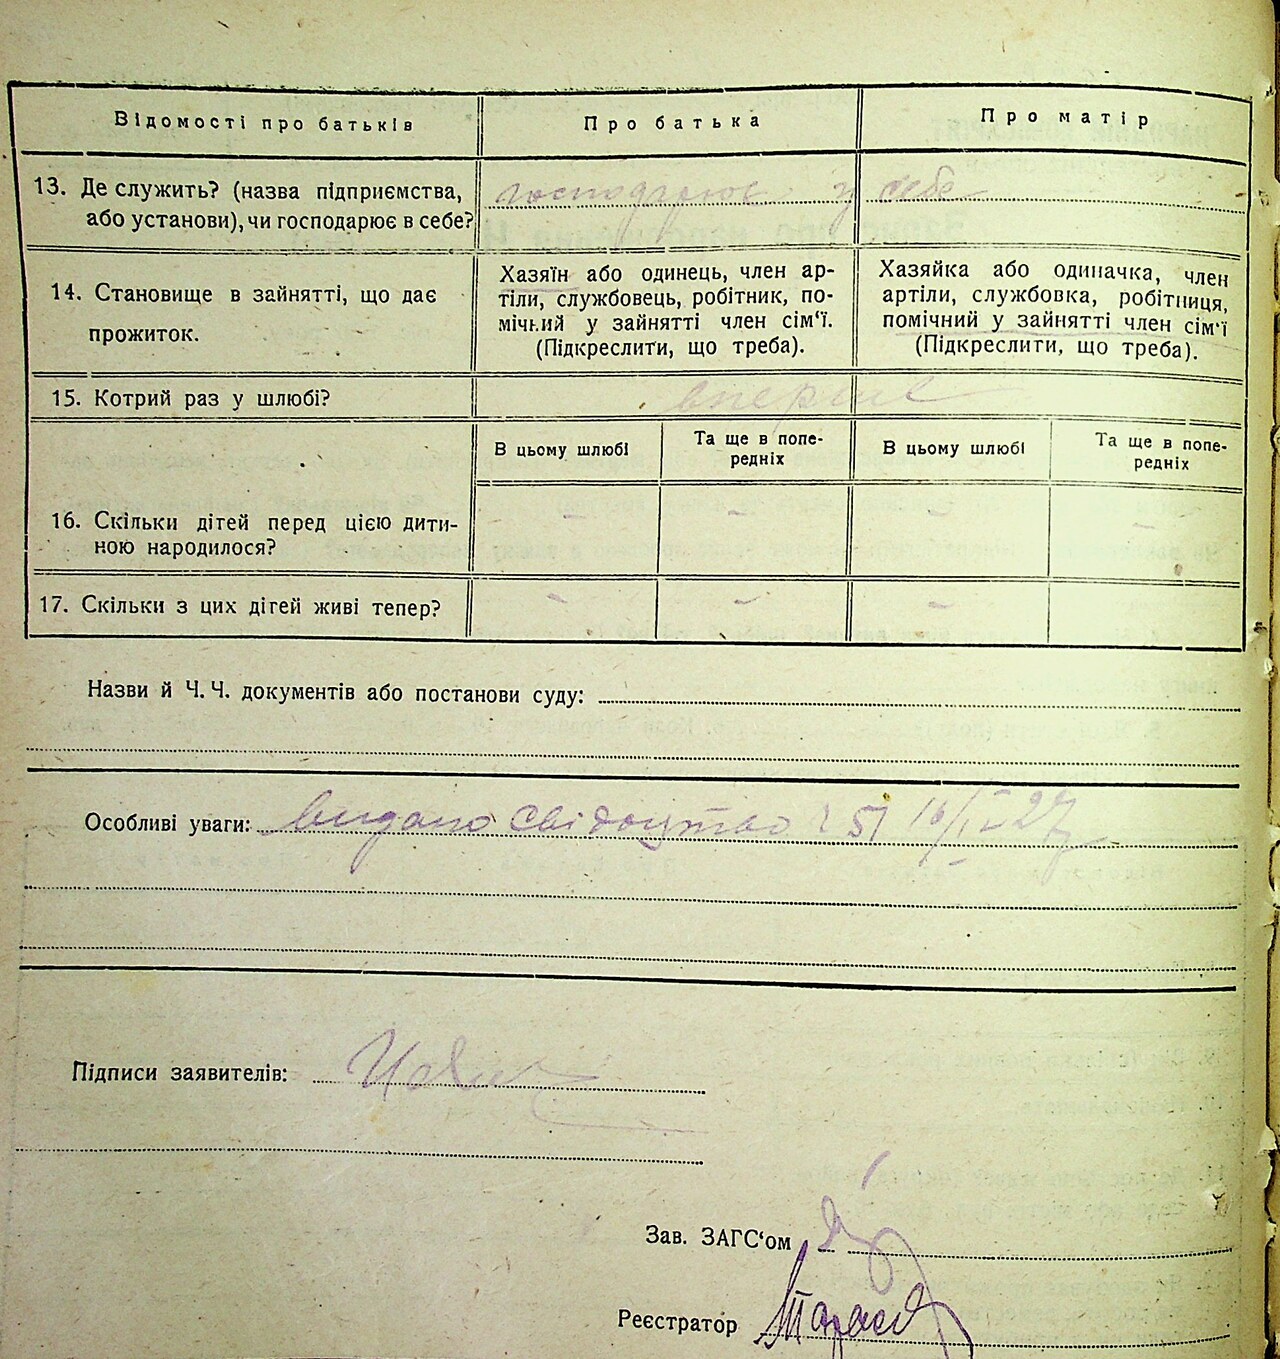 Відомості про батьків
Про батька
Про матір
13. Де служить? (назва підприємства,
або установи), чи господарює в себе?
господарює у себе
14. Становище в зайнятті, що дає
прожиток.
Хазяїн або одинець, член ар-
тіли, службовець, робітник, по-
мічний у зайнятті член сім‘ї.
(Підкреслити, що треба).
Хазяйка або одиначка, член
артіли, службовка, робітниця,
помічний у зайнятті член сім‘ї
(Підкреслити, що треба).
15. Котрий раз у шлюбі?
вперше
В цьому шлюбі
Та ще в попе-
редніх
В цьому шлюбі
Та ще в попе-
редніх
16. Скільки дітей перед цією дити-
ною народилося?
– – – –
17. Скільки з цих дітей живі тепер?
– – –
Назви й Ч. Ч. документів або постанови суду:
Особливі уваги: видано свідоцтво 51 16/IV 27
Підписи заявителів:
Зав. ЗАГС‘ом
Реєстратор